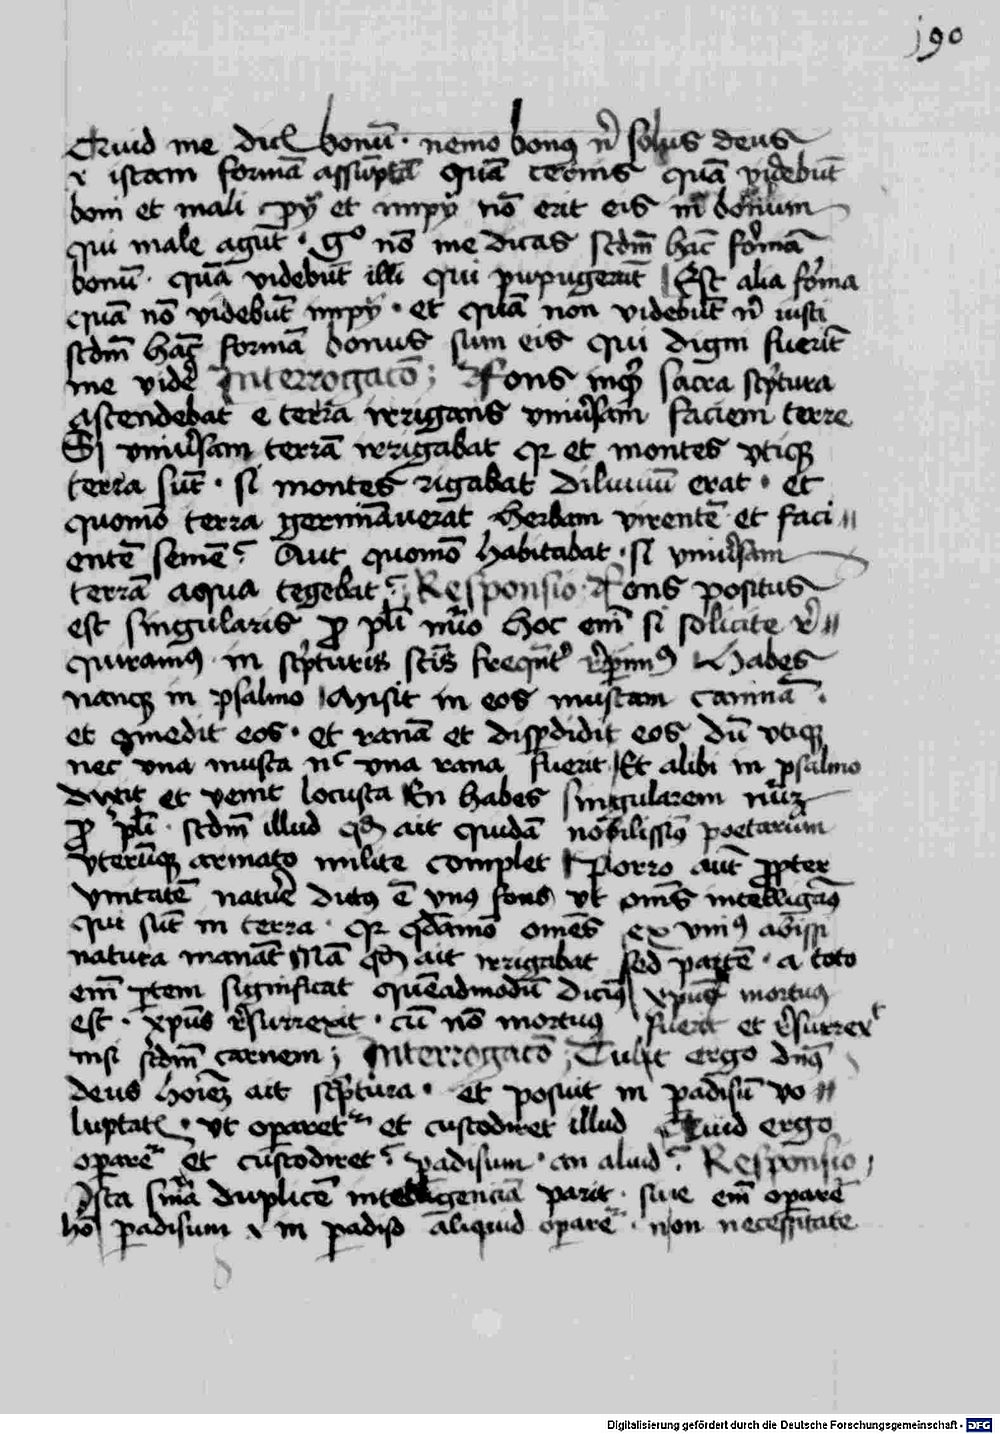 j90
Quid me dic̄ bonū · nemo bonꝰ n̄ solus deus
⁊ istam formā assūptā quā cernis quā videbūt
boni et mali pij et impij nō erit eis in bonum
qui male agūt · gͦ nō me dicas scdm̄ hāc formā
bonū · quā videbūt illi qui pupugerūt Est alia forma
quā nō videbūt impij · et quā non videbūt n̄ iusti
scdm̄ hāc formā bonus sum eis qui digni fuerīt
me vidē Interrogacō ; Fons inq̄ sacra sc̄ptura
ascendebat e terra irrigans vniūsam faciem terre
Si vniūsam terrā irrigabat qr et montes vtiqꝫ
terra sūt · si montes rigabat diluuiū erat · et
quomō terra germīauerat herbam virentē et faci〃
entē semē ? Aut quomō habitabat · si vniūsam
terrā aqua tegebat ? Responsio · Fons positus
est singularis ꝓ pl̄i nūo hoc em̄ si solicite r̄〃
quiramꝰ in sc̄pturis sc̄is freqn̄t r̄perimꝰ Habes
nanqꝫ in psalmo Misit in eos muscam caninā ·
et ꝯmedit eos · et ranā et disꝑdidit eos dū vtiqꝫ
nec vna musca nc̄ vna rana fuerit Et alibi in psalmo
dixit et venit locusta En habes singularem nūꝫ
ꝓ pl̄i · scdm̄ illud qd̄ ait quidā nobilissīo poetarum
vterūqꝫ armato milite complet Porro aūt ꝓpter
vnitatē natūe dictꝰ ē vnꝰ fons vt om̄s intelligāꝰ
qui sūt in terra · qr qd̄amō omēs ex vniꝰ abissi
natura manāt Nā qd̄ ait irrigabat sed partē · a toto
em̄ ꝑtem significat quēadmodū dicimꝰ xp̄us mortuꝰ
est · xp̄us r̄surrexit · cū nō mortuꝰ fuerit et r̄surrexᵗ
nisi scdm̄ carnem ; Interrogacō ; Tulit ergo dn̄s
deus hoīeꝫ ait sc̄ptura · et posuit in ꝑadisū vo〃
luptatꝭ · vt oꝑaret᷑ et custodiret illud Quid ergo
oꝑare᷑ et custodiret ? ꝑadisum · an aliud ? Responsio ;
Ista sn̄ia duplicē intelligenciā parit · siue em̄ oꝑarē
hō ꝑadisum ⁊ in ꝑadiso aliquid oꝑare᷑ · non necessitate
Digitalisierung gefördert durch die Deutsche Forschungsgemeinschaft - DFG